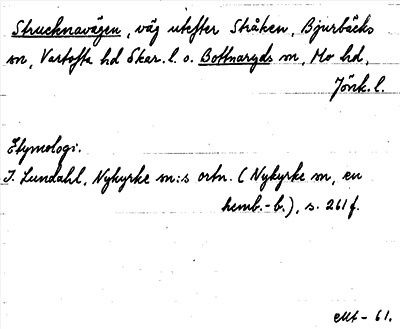 Strucknavägen, väg utefter Stråken, Bjurbäcks
sn, Vartofta hd Skar. l. o. Bottnaryds sn, Mo hd,
Jönk. l.
Etymologi.
I. Lundahl, Nykyrke sn:s ortn. (Nykyrke sn, en
hemb.-b.), s. 261 f.
-61.